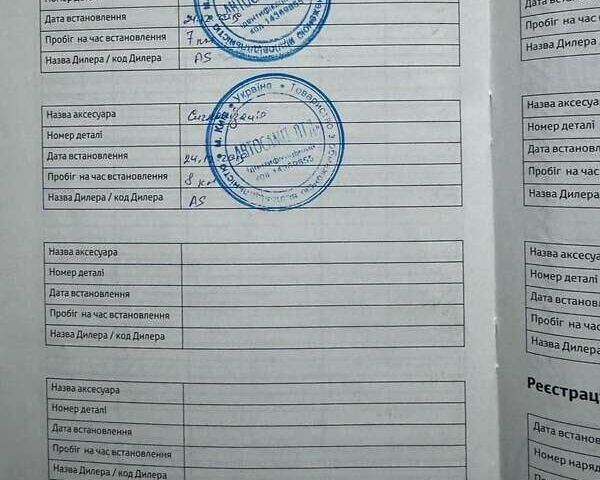 Дата встановлення
Пробіг на час встановлення 7 км
Назва Дилера / код Дилера AS
Назва аксесуара Сигналізація
Номер деталі
Дата встановлення
Пробіг на час встановлення 8 км
Назва Дилера / код Дилера AS
Україна * Товариство з обмеженою відповідальністю * м. Київ
ідентифікаційний
код 14349855
Назва аксесуара
Номер деталі
Дата встановлення
Пробіг на час встановлення
Назва Дилера / код Дилера
Назва аксесуара
Номер деталі
Дата встановлення
Пробіг на час встановлення
Назва Дилера / код Дилера
Пробіг на час
Назва Дилера
Назва аксесуа
Номер деталі
Дата встановл
Пробіг на час
Назва Дилера
Назва аксесуа
Номер деталі
Дата встановл
Пробіг на час
Назва Дилера
Реєстрац
Дата встанов
Номер наряд